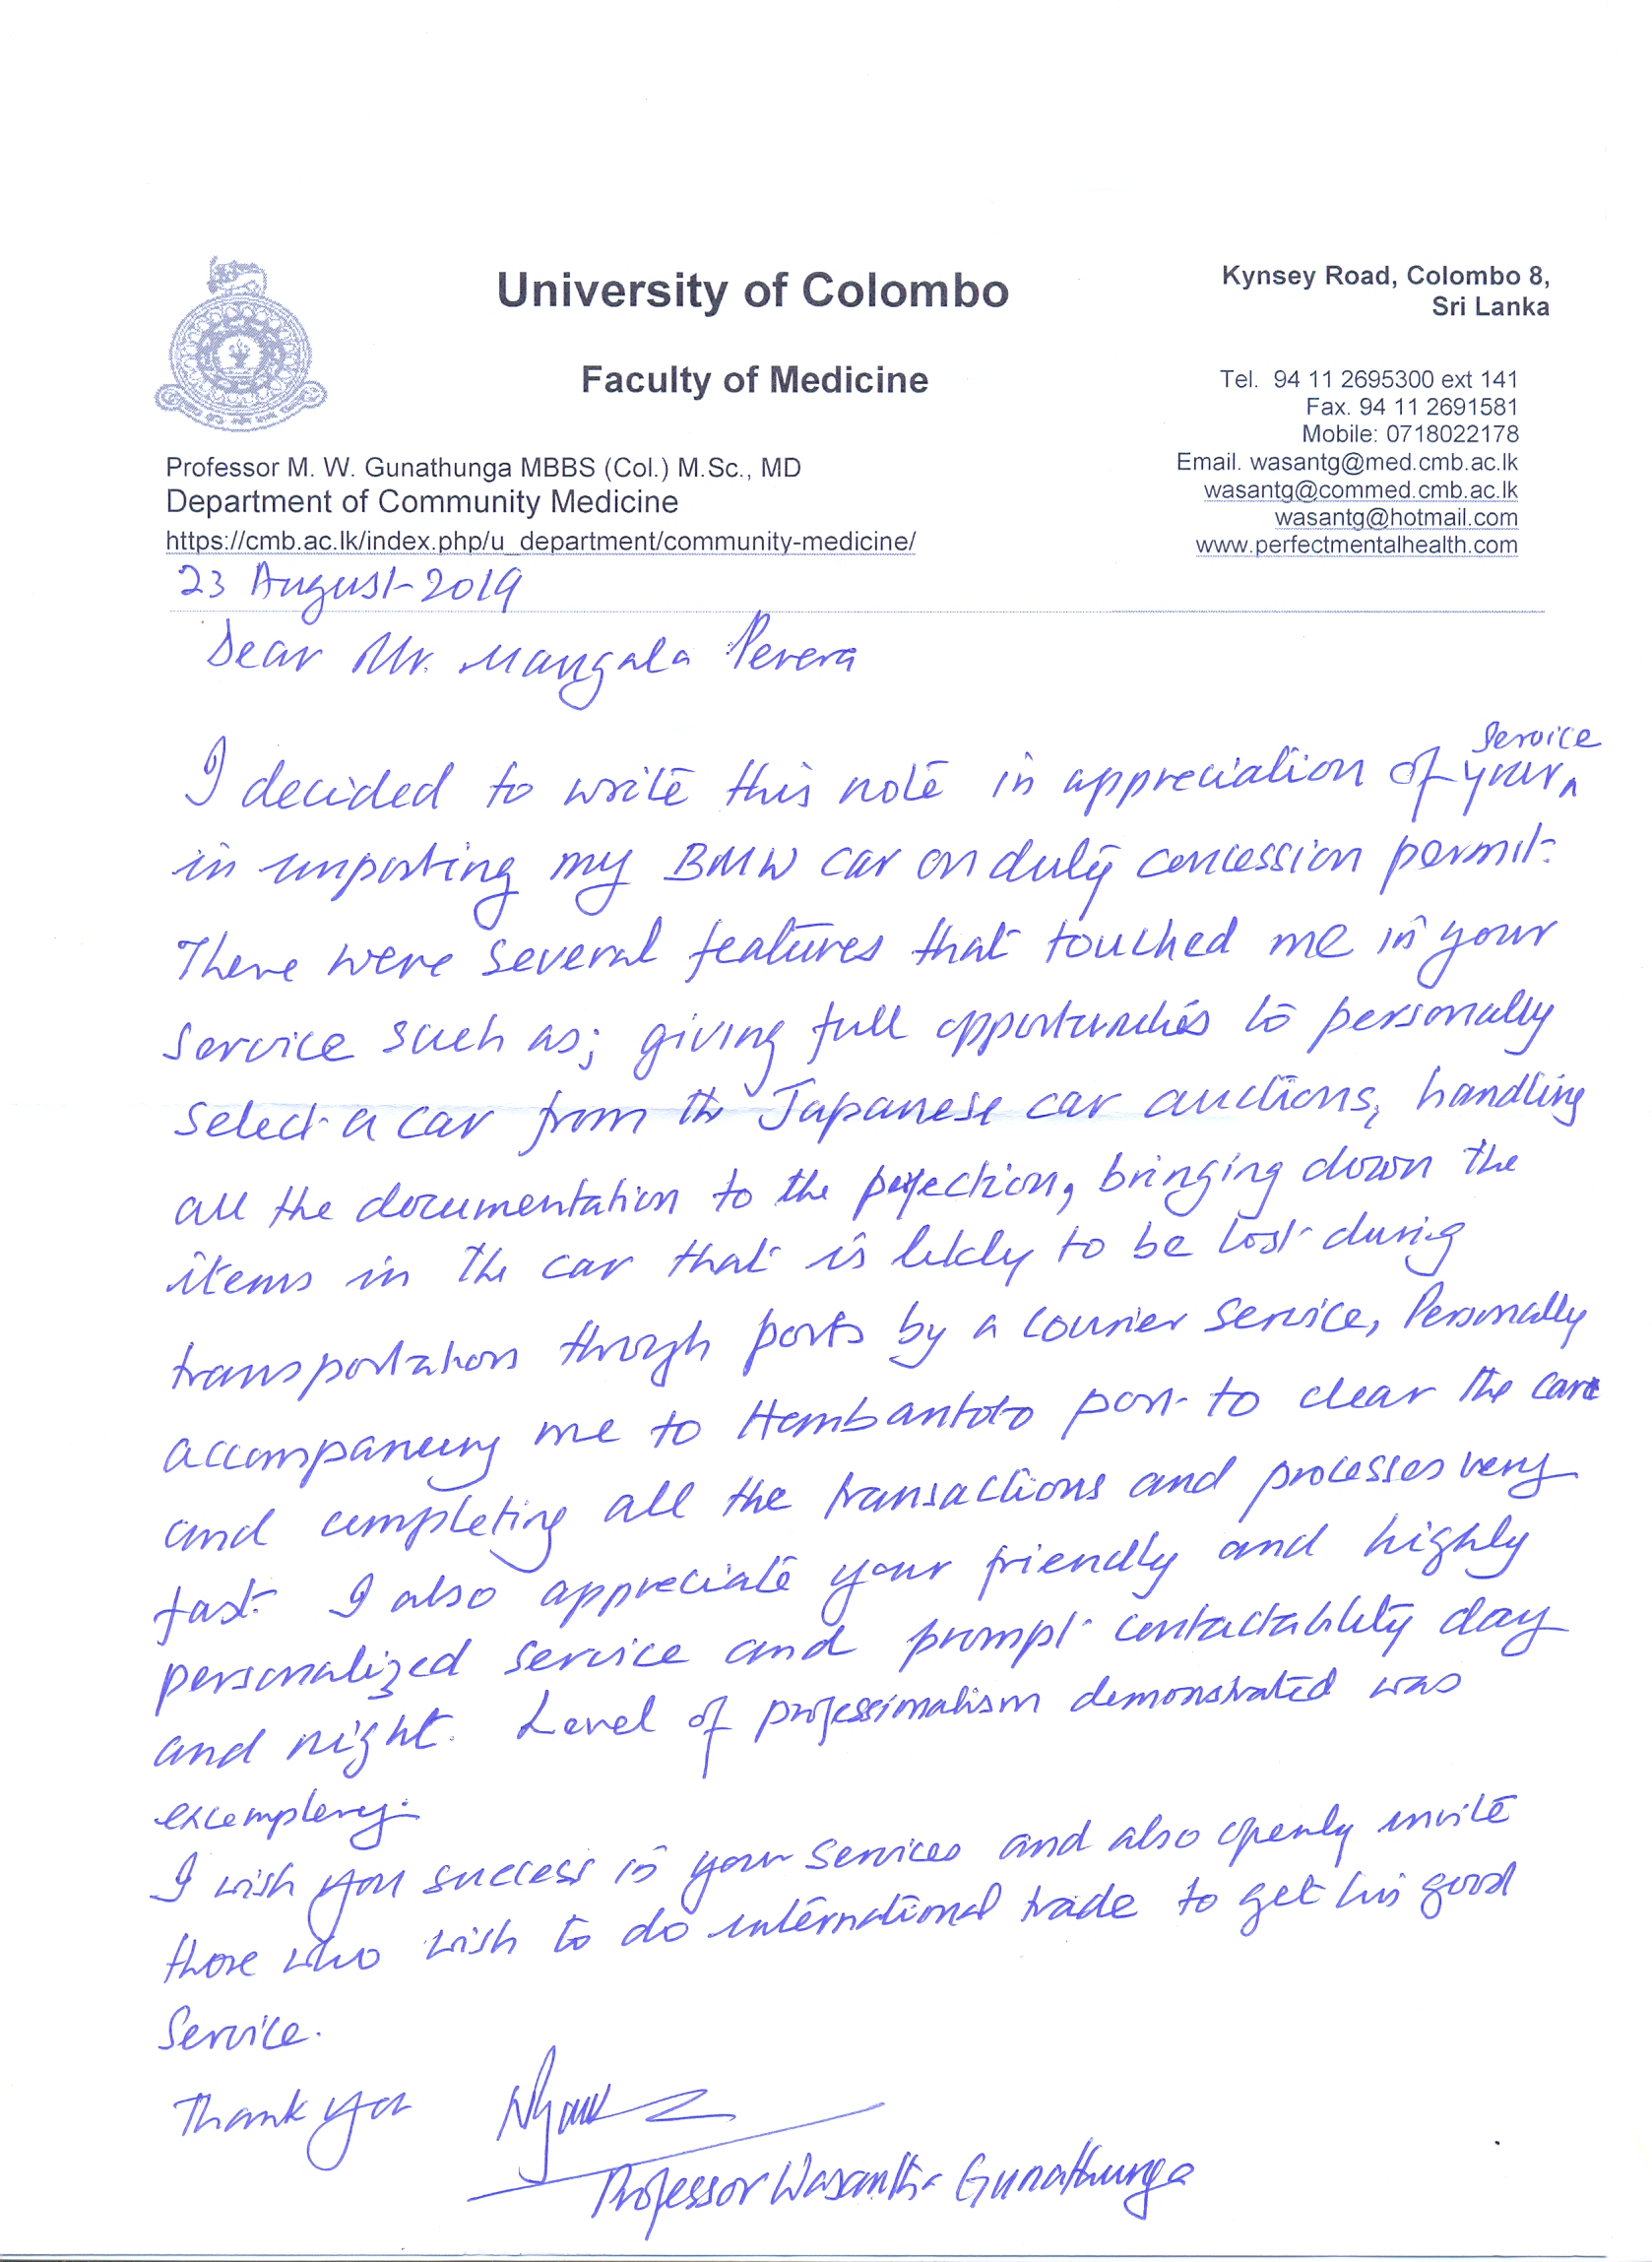 University of Colombo
Faculty of Medicine
Kynsey Road, Colombo 8,
Sri Lanka
Tel. 94 11 2695300 ext 141
Fax. 94 11 2691581
Mobile: 0718022178
Email. wasantg@med.cmb.ac.lk
wasantg@commed.cmb.ac.lk
wasantg@hotmail.com
www.perfectmentalhealth.com
Professor M. W. Gunathunga MBBS (Col.) M.Sc., MD
Department of Community Medicine
https://cmb.ac.lk/index.php/u_department/community-medicine/
23 August 2019
Dear Mr. Mangala Perera
I decided to write this note in appreciation of your service
in importing my BMW car on duty concession permit.
There were several features that touched me in your
service such as; giving full opportunities to personally
select a car from the Japanese car auctions, handling
all the documentation to the perfection, bringing down the
items in the car that is likely to be lost during
transportation through ports by a courier service, Personally
accompaning me to Hambantoto port to clear the car
and completing all the transactions and processes very
fast. I also appreciate your friendly and highly
personalized service and prompt contactability day
and night. Level of professionalism demonstrated was
excemplery.
I wish you success in your services and also openly invite
those who wish to do international trade to get his good
Service.
Thank you
Professor Wasantha Gunathunga